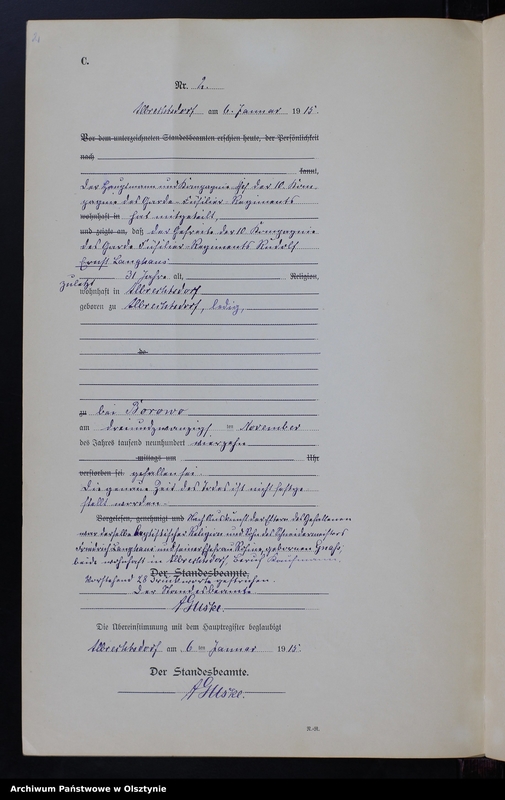 C.
Nr. 2.
Albrechtsdorf am 6. Januar 1915.
Vor dem unterzeichneten Standesbeamten erschien heute, der Persönlichkeit
nach
kannt,
der Hauptmann und Kompagnie-Chef der 10. Kom-
pagnie des Garde-Füsilier-Regiments
wohnhaft in hat mitgeteilt,
und zeigte an, daß der Gefreite der 10. Kompagnie
des Garde Füsilier-Regiments Rudolf
Ernst Langhans
31 Jahre alt, Religion,
zuletzt
wohnhaft in Albrechtsdorf
geboren zu Albrechtsdorf, ledig,
de
zu bei Borowo
am dreiundzwanzigsten November
des Jahres tausend neunhundert vierzehn
mittags um Uhr
verstorben sei. gefallen sei.
Die genaue Zeit des Todes ist nicht festge-
stellt worden.
Vorgelesen, genehmigt und Nach Auskunft der Eltern des Gefallenen
war derselbe baptistischer Religion und Sohn des Schneidermeisters
Friedrich Langhans und seiner Ehefrau geborenen
beide wohnhaft in Albrechtsdorf. Beruf Kaufmann.
Der Standesbeamte.
Vorstehend 28 Druckworte gestrichen.
Der Standesbeamte.
Die Übereinstimmung mit dem Hauptregister beglaubigt
Albrechtsdorf am 6 ten Januar 1915.
Der Standesbeamte.
Archiwum Państwowe w Olsztynie